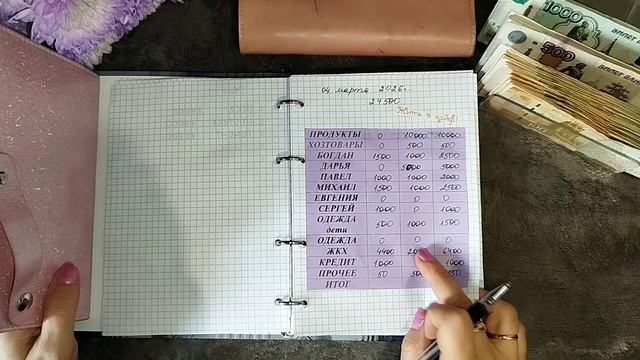 04 марта 2026г.
24500
Жить в кайф!
ПРОДУКТЫ 0 10000 10000
ХОЗТОВАРЫ 0 500 500
БОГДАН 1500 1000 2500
ДАРЬЯ 0 5000 5000
ПАВЕЛ 1000 1000 2000
МИХАИЛ 1500 1000 2500
ЕВГЕНИЯ 0 0 0
СЕРГЕЙ 1000 0 1000
ОДЕЖДА дети 500 1000 1500
ОДЕЖДА 0 0 0
ЖКХ 4400 6400
КРЕДИТ 1000 1000
ПРОЧЕЕ 50
ИТОГ
1000
500
БИЛЕТ